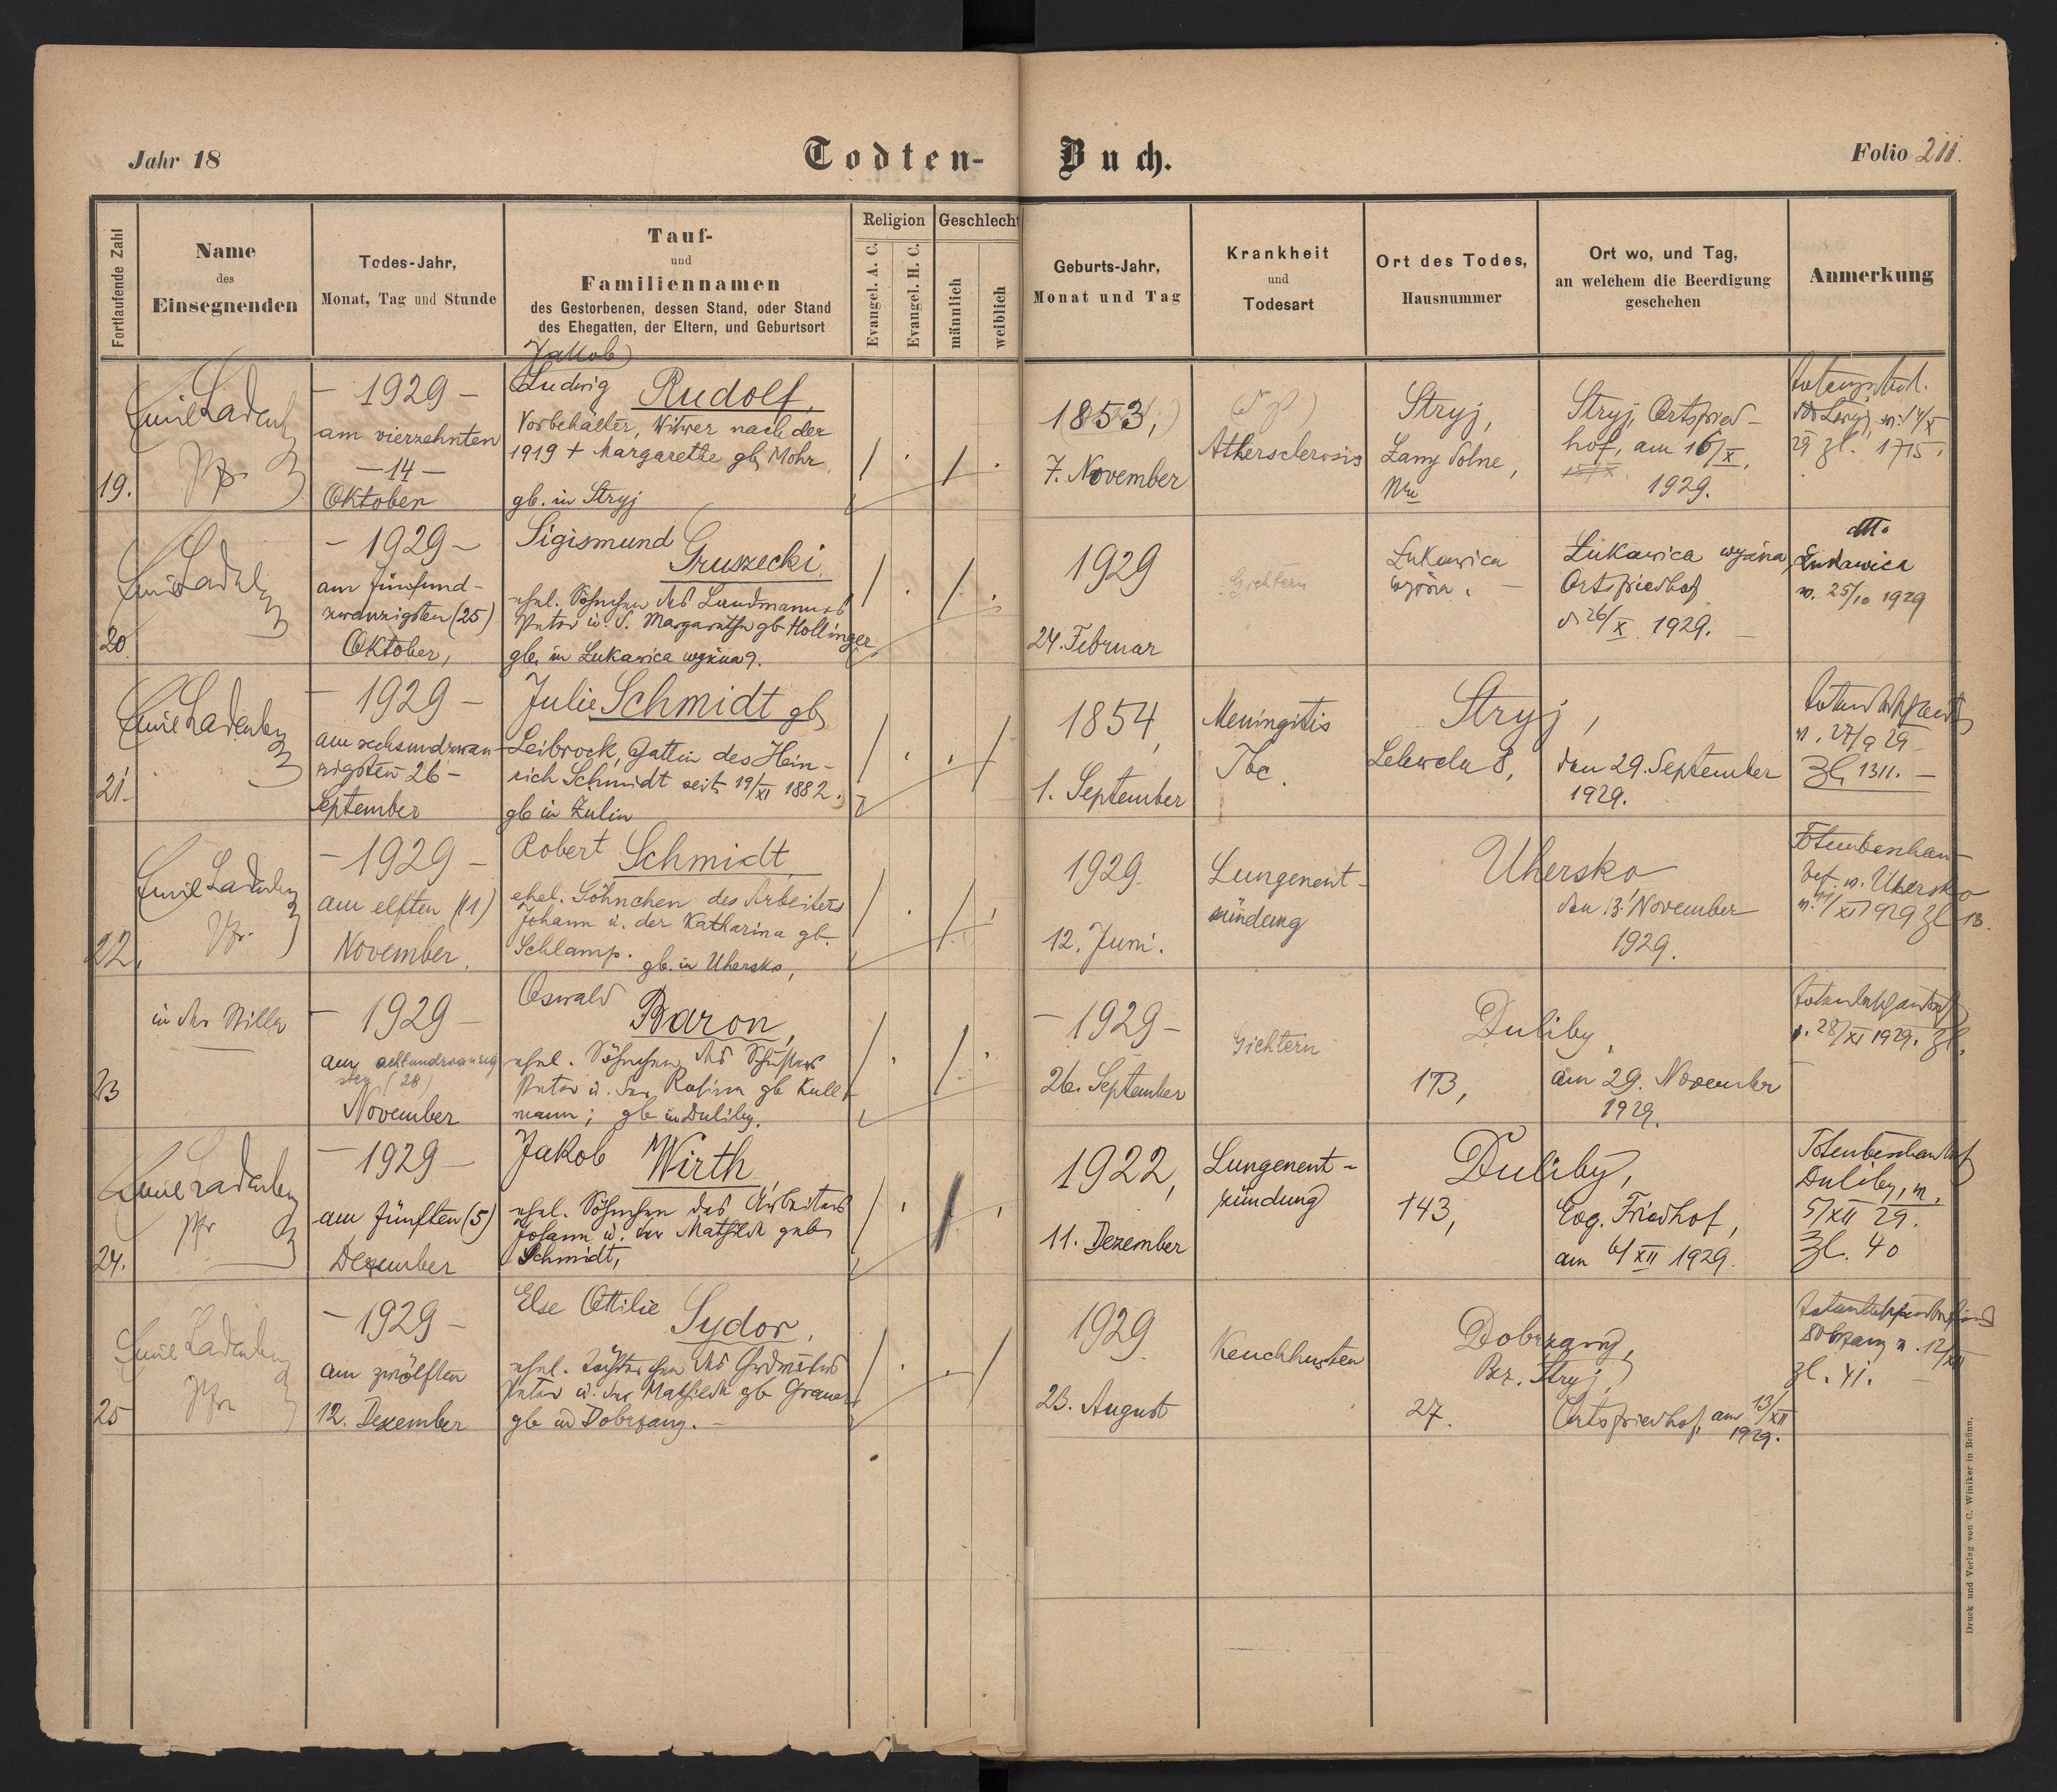 Jahr 18
Todten-Buch.
Folio 211.
Fortlaufende Zahl
Name
des
Einsegnenden
Todes-Jahr,
Monat, Tag und Stunde
Tauf-
und
Familiennamen
des Gestorbenen, dessen Stand, oder Stand
des Ehegatten, der Eltern, und Geburtsort
Religion
Evangel. A. C.
Evangel. H. C.
Geschlecht
männlich
weiblich
Geburts-Jahr,
Monat und Tag
Krankheit
und
Todesart
Ort des Todes,
Hausnummer
Ort wo, und Tag,
an welchem die Beerdigung
geschehen
Anmerkung
19.
Pfr.
– 1929 –
am vierzehnten
– 14 –
Oktober
Jakob
Ludwig Rudolf,
Vorbehälter, Witwer nach der
1919 + Margarethe gb. Mohr,
gb. in Stryj
1853,
7. November
Athersclerosis
Stryj,
Łany Polne,
Stryj, Ortsfried-
hof, am 16/X,
1929.
29 Zl. 1715.
20.
– 1929 –
am fünfund-
zwanzigsten (25)
Oktober,
Sigismund
Gruszecki,
ehel. Söhnchen des Landmannes
Peter u. d. Margarethe gb Hollinger
gb. in Łukawica wyżna 9.
1929
24. Februar
Gichtern
Łukawica
wyżna.
Łukawica wyżna,
Ortsfriedhof
d 26/X 1929.
Łukawica
v. 25/10 1929
21.
Emil Ladenberger
– 1929 –
am sechsundzwan-
zigsten 26 –
September
Julie Schmidt gb,
Leibrock, Gattin des Hein-
rich Schmidt seit 19/XI 1882.
gb in Zulin
1854,
1. September
Meningitis
Tbc.
Stryj,
Lelewela 8,
den 29. September
1929.
v. 27/9 29
Zl. 1311. –
22.
Emil Ladenberger
Pfr.
– 1929 –
am elften (11)
November.
Robert Schmidt,
ehel. Söhnchen des Arbeiters
Johann u. der Katharina gb.
Schlamp. gb. in Uhersko,
1929.
12. Juni.
Lungenent-
zündung
Uhersko
den 13. November
1929.
Totenbeschau-
bef. v. Uhersko
v. 11/XI 1929 Zl 13.
23
in der Stille
– 1929 –
am achtundzwanzig
sten (28)
November
Oswald
Baron,
ehel. Söhnchen des Schusters
Peter u. der Rosina gb Kull
mann; gb in Duliby.
– 1929 –
26. September
Gichtern
Duliby,
173,
am 29. November
1929.
v. 28/XI 1929. Zl.
24.
Emil Ladenberger
Pfr
– 1929 –
am fünften (5)
Dezember
Jakob Wirth
ehel. Söhnchen des Arbeiters
Johann u. der Mathilde geb
Schmidt,
1922,
11. Dezember
Lungenent-
zündung
Duliby,
143,
Evg. Friedhof,
am 6/XII 1929.
Totenbeschaubef
Duliby, v.
5/XII 29.
Zl. 40
25
Emil Ladenberger
Pfr
– 1929 –
am zwölften
12. Dezember
Else Ottilie
Sydor,
ehel. Töchterchen des
Peter u. der Mathilde gb Grauer
gb in Dobrzany. –
1929.
23. August
Keuchhusten
Dobrzany,
Bez. Stryj,
27.
Ortsfriedhof, am 13/XII
1929.
Dobrzany v. 12/XII
Zl. 41. –
Druck und Verlag von C. Winiker in Brünn.